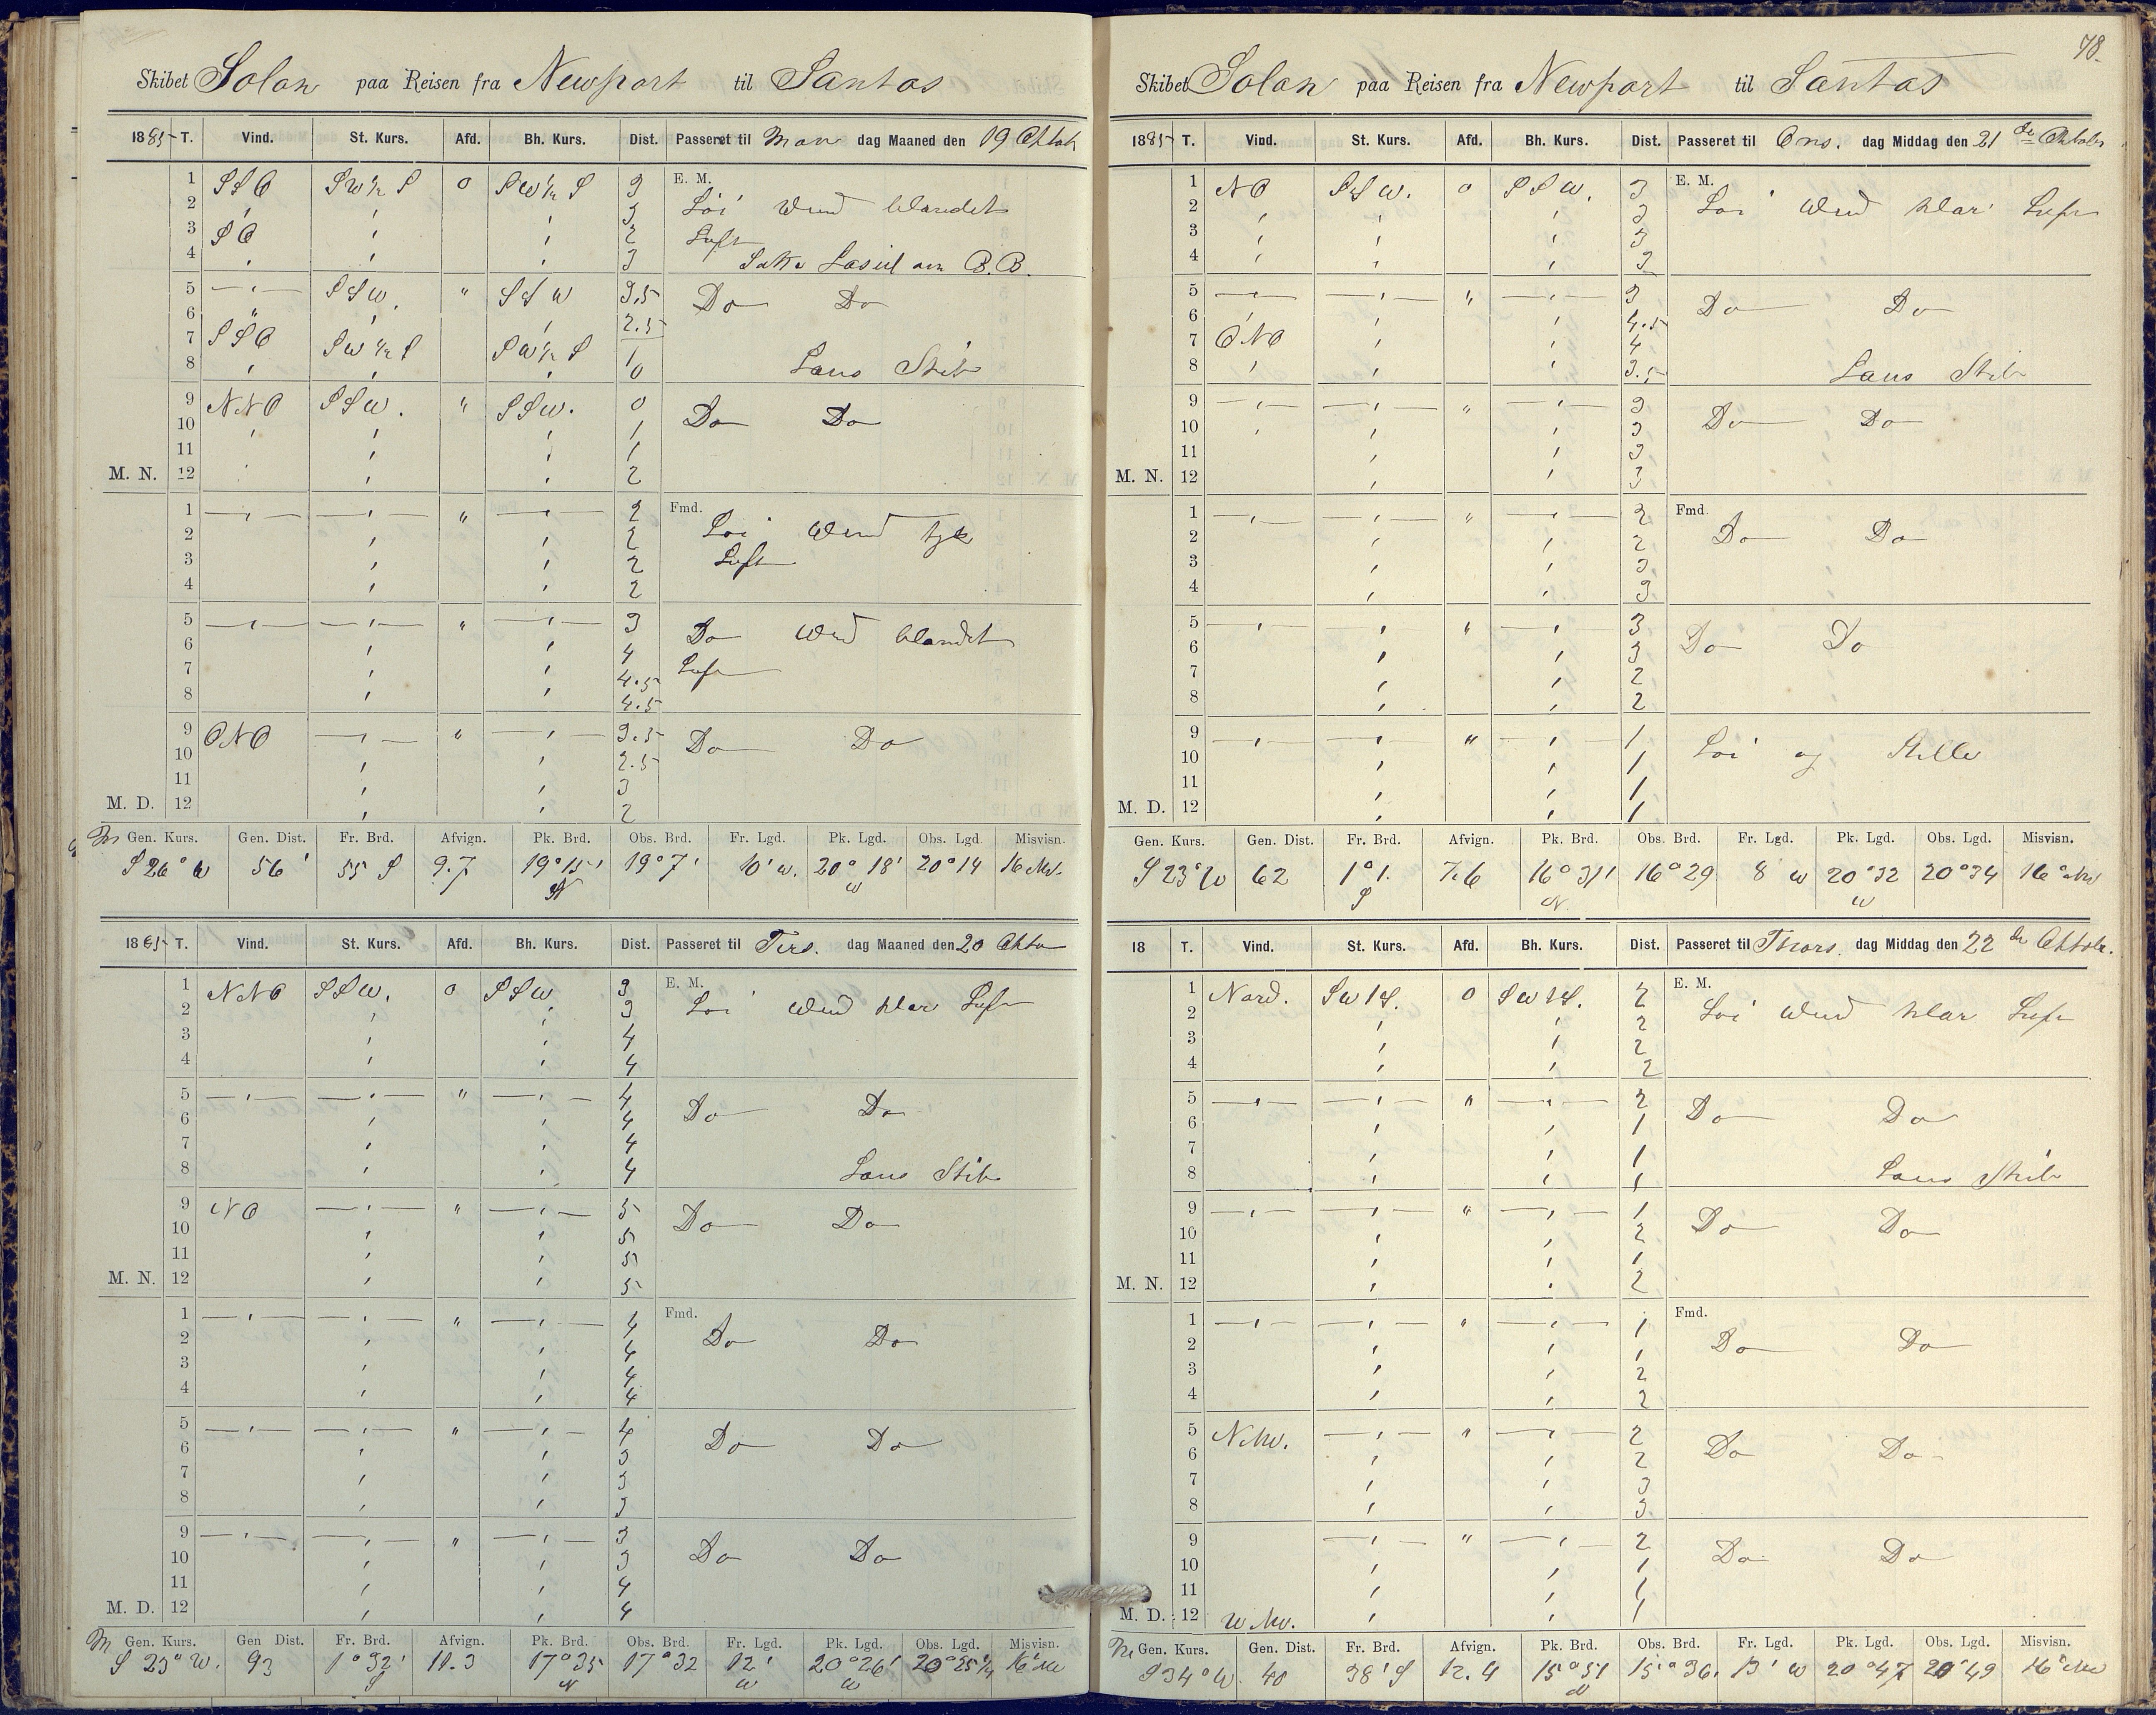 Skibet Solon paa Reisen fra Newport til Santos
1885 T. Vind. St. Kurs. Afd. Bh. Kurs. Dist. Passeret til Man dag Maaned den 19 Oktob
1 SSO SW½S 0 SW½S 3 E. M.
2 ' ' ' 3 Löi Wind blandet
3 SO ' ' 2 Luft
4 ' ' ' 3 B.B.
5 —"— SSW. " SSW 3.5 Do Do
6 " ' ' 2.5
7 SSO SW½S SW½S 1
8 ' ' ' 0 Lans Skib
9 NNO SSW. " SSW. 0 Do Do
10 ' ' ' 1
11 ' ' 1
M. N. 12 ' ' ' 2
1 —"— —"— " —"— 2 Fmd.
2 ' ' 2 Löi Wind tyk
3 ' ' 2 Luft
4 ' ' 2
5 —"— —"— " —"— 3 Do Wind blandet
6 ' ' 4 Luft
7 ' ' 4.5
8 ' ' 4.5
9 ONO —"— " —"— 3.5 Do Do
10 ' ' 2.5
11 ' ' 3
M. D. 12 ' ' 2
M Gen. Kurs. Gen. Dist. Fr. Brd. Afvign. Pk. Brd. Obs. Brd. Fr. Lgd. Pk. Lgd. Obs. Lgd. Misvisn.
S 26° W 56' 55 S 9.7 19°15' N 19°7' 10' W. 20°18' W 20°14 16 NW.
1885 T. Vind. St. Kurs. Afd. Bh. Kurs. Dist. Passeret til Tirs. dag Maaned den 20 Okto
1 NNO SSW. 0 SSW 3 E. M.
2 ' ' 3 Löi Wind klar Luft
3 ' ' 4
4 ' ' 4
5 —"— —"— " —"— 4 Do Do
6 ' ' 4
7 ' ' 4
8 ' ' 4 Lans Skib
9 NO —"— " —"— 5 Do Do
10 ' ' 5
11 ' ' 5
M. N. 12 ' ' 5
1 —"— —"— " —"— 4 Fmd.
2 ' ' 4 Do Do
3 ' ' 4
4 ' ' 4
5 —"— —"— " —"— 4 Do Do
6 ' ' 3
7 ' ' 3
8 ' ' 3
9 —"— —"— " —"— 3 Do Do
10 ' ' 3
11 ' ' 4
M. D. 12 ' ' 4
M Gen. Kurs. Gen Dist. Fr. Brd. Afvign. Pk. Brd. Obs. Brd. Fr. Lgd. Pk. Lgd. Obs. Lgd. Misvisn.
S 23° W. 93 1°32' S 11.3 17°35 N 17°32 12' W 20°26' W 20°25¼ 16° NW
78.
Skibet Solon paa Reisen fra Newport til Santos
1885 T. Vind. St. Kurs. Afd. Bh. Kurs. Dist. Passeret til Ons. dag Middag den 21 de Oktober
1 NO SSW. 0 SSW. 3 E. M.
2 ' ' ' 3 Löi Wind klar Luft
3 ' ' ' 3
4 ' ' ' 3
5 —"— —"— " —"— 3 Do Do
6 ' ' ' 4.5
7 ONO ' ' 4
8 ' ' ' 3.5 Lans Skib
9 —"— —"— " —"— 3 Do Do
10 ' ' ' 3
11 ' ' 3
M. N. 12 ' ' 3
1 —"— —"— " —"— 2 Fmd.
2 ' ' 2 Do Do
3 ' ' 3
4 ' ' 3
5 —"— ' " —"— 3 Do Do
6 ' ' 3
7 ' ' 2
8 ' ' 2
9 —"— —"— " —"— 1 Löi og Stille
10 ' ' 1
11 ' ' 1
M. D. 12 ' ' 1
Gen. Kurs. Gen. Dist. Fr. Brd. Afvign. Pk. Brd. Obs. Brd. Fr. Lgd. Pk. Lgd. Obs. Lgd. Misvisn.
S 23° W 62 1°1. S 7.6 16°31' N. 16°29 8 W 20°32 W 20°34 16° NW
18 T. Vind. St. Kurs. Afd. Bh. Kurs. Dist. Passeret til Thors. dag Middag den 22 de Oktob.
1 Nord. SW1S. 0 SW1S. 2 E. M.
2 ' ' 2 Löi Wind klar Luft
3 ' ' 2
4 ' ' 2
5 —"— —"— " —"— 2 Do Do
6 ' ' 1
7 ' ' 1
8 ' ' 1 Lans Skib
9 —"— —"— " —"— 1 Do Do
10 ' ' 2
11 ' ' 1
M. N. 12 ' ' 2
1 —"— —"— " —"— 1 Fmd.
2 ' ' 1 Do Do
3 ' ' 2
4 ' ' 2
5 NNW. —"— " —"— 2 Do Do
6 ' ' 2
7 ' ' 3
8 ' ' 3
9 —"— " —"— 2 Do Do
10 ' ' 1
11 ' ' 1
M. D. 12 WNW. ' ' 1
M Gen. Kurs. Gen. Dist. Fr. Brd. Afvign. Pk. Brd. Obs. Brd. Fr. Lgd. Pk. Lgd. Obs. Lgd. Misvisn.
S 34° W 40 38' S 12.4 15°51 N 15°36. 13' W 20°47 20°49 16° NW